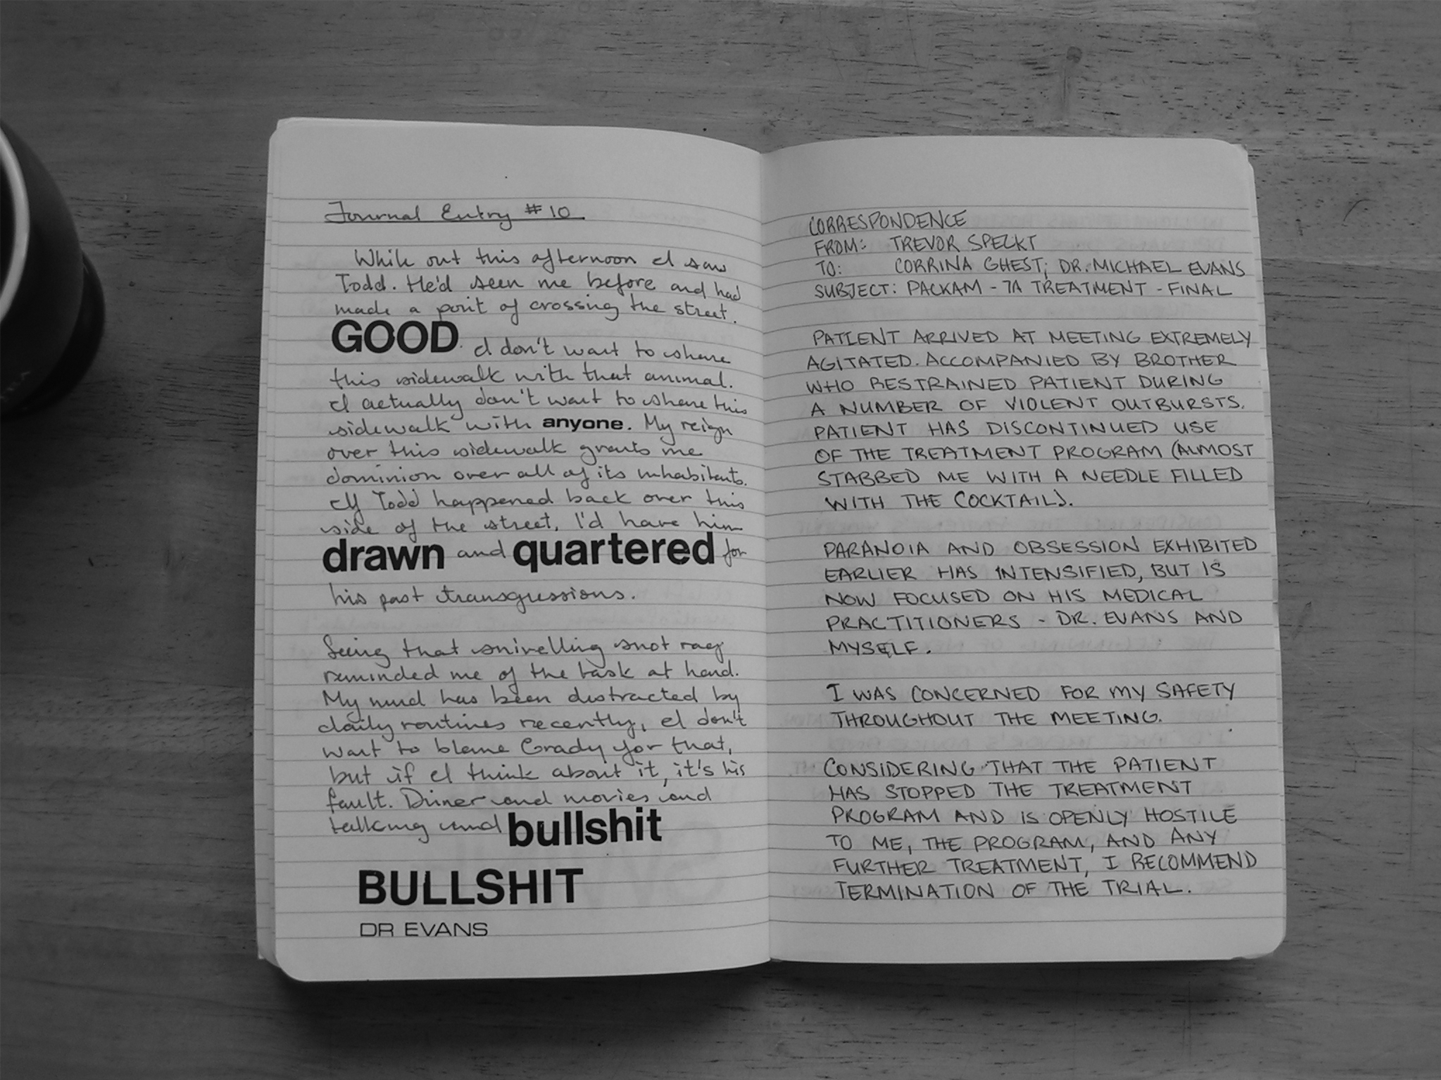 Journal Entry #10
While out this afternoon I saw
Todd. He'd seen me before and had
made a point of crossing the street.
GOOD. I don't want to share
this sidewalk with that animal.
I actually don't want to share this
sidewalk with anyone. My reign
over this sidewalk grants me
dominion over all of its inhabitants.
If Todd happened back over this
side of the street, I'd have him
drawn and quartered for
his past transgressions.
Seeing that snivelling snot rag
reminded me of the task at hand.
My mind has been distracted by
daily routines recently, I don't
want to blame Grady for that,
but if I think about it, it's his
fault. Dinner and movies and
talking and bullshit
BULLSHIT
DR EVANS
CORRESPONDENCE
FROM: TREVOR SPECKT
TO: CORRINA GHEST; DR. MICHAEL EVANS
SUBJECT: PACKAM - 7A TREATMENT - FINAL
PATIENT ARRIVED AT MEETING EXTREMELY
AGITATED. ACCOMPANIED BY BROTHER
WHO RESTRAINED PATIENT DURING
A NUMBER OF VIOLENT OUTBURSTS.
PATIENT HAS DISCONTINUED USE
OF THE TREATMENT PROGRAM (ALMOST
STABBED ME WITH A NEEDLE FILLED
WITH THE COCKTAIL).
PARANOIA AND OBSESSION EXHIBITED
EARLIER HAS INTENSIFIED, BUT IS
NOW FOCUSED ON HIS MEDICAL
PRACTITIONERS - DR. EVANS AND
MYSELF.
I WAS CONCERNED FOR MY SAFETY
THROUGHOUT THE MEETING.
CONSIDERING THAT THE PATIENT
HAS STOPPED THE TREATMENT
PROGRAM AND IS OPENLY HOSTILE
TO ME, THE PROGRAM, AND ANY
FURTHER TREATMENT, I RECOMMEND
TERMINATION OF THE TRIAL.